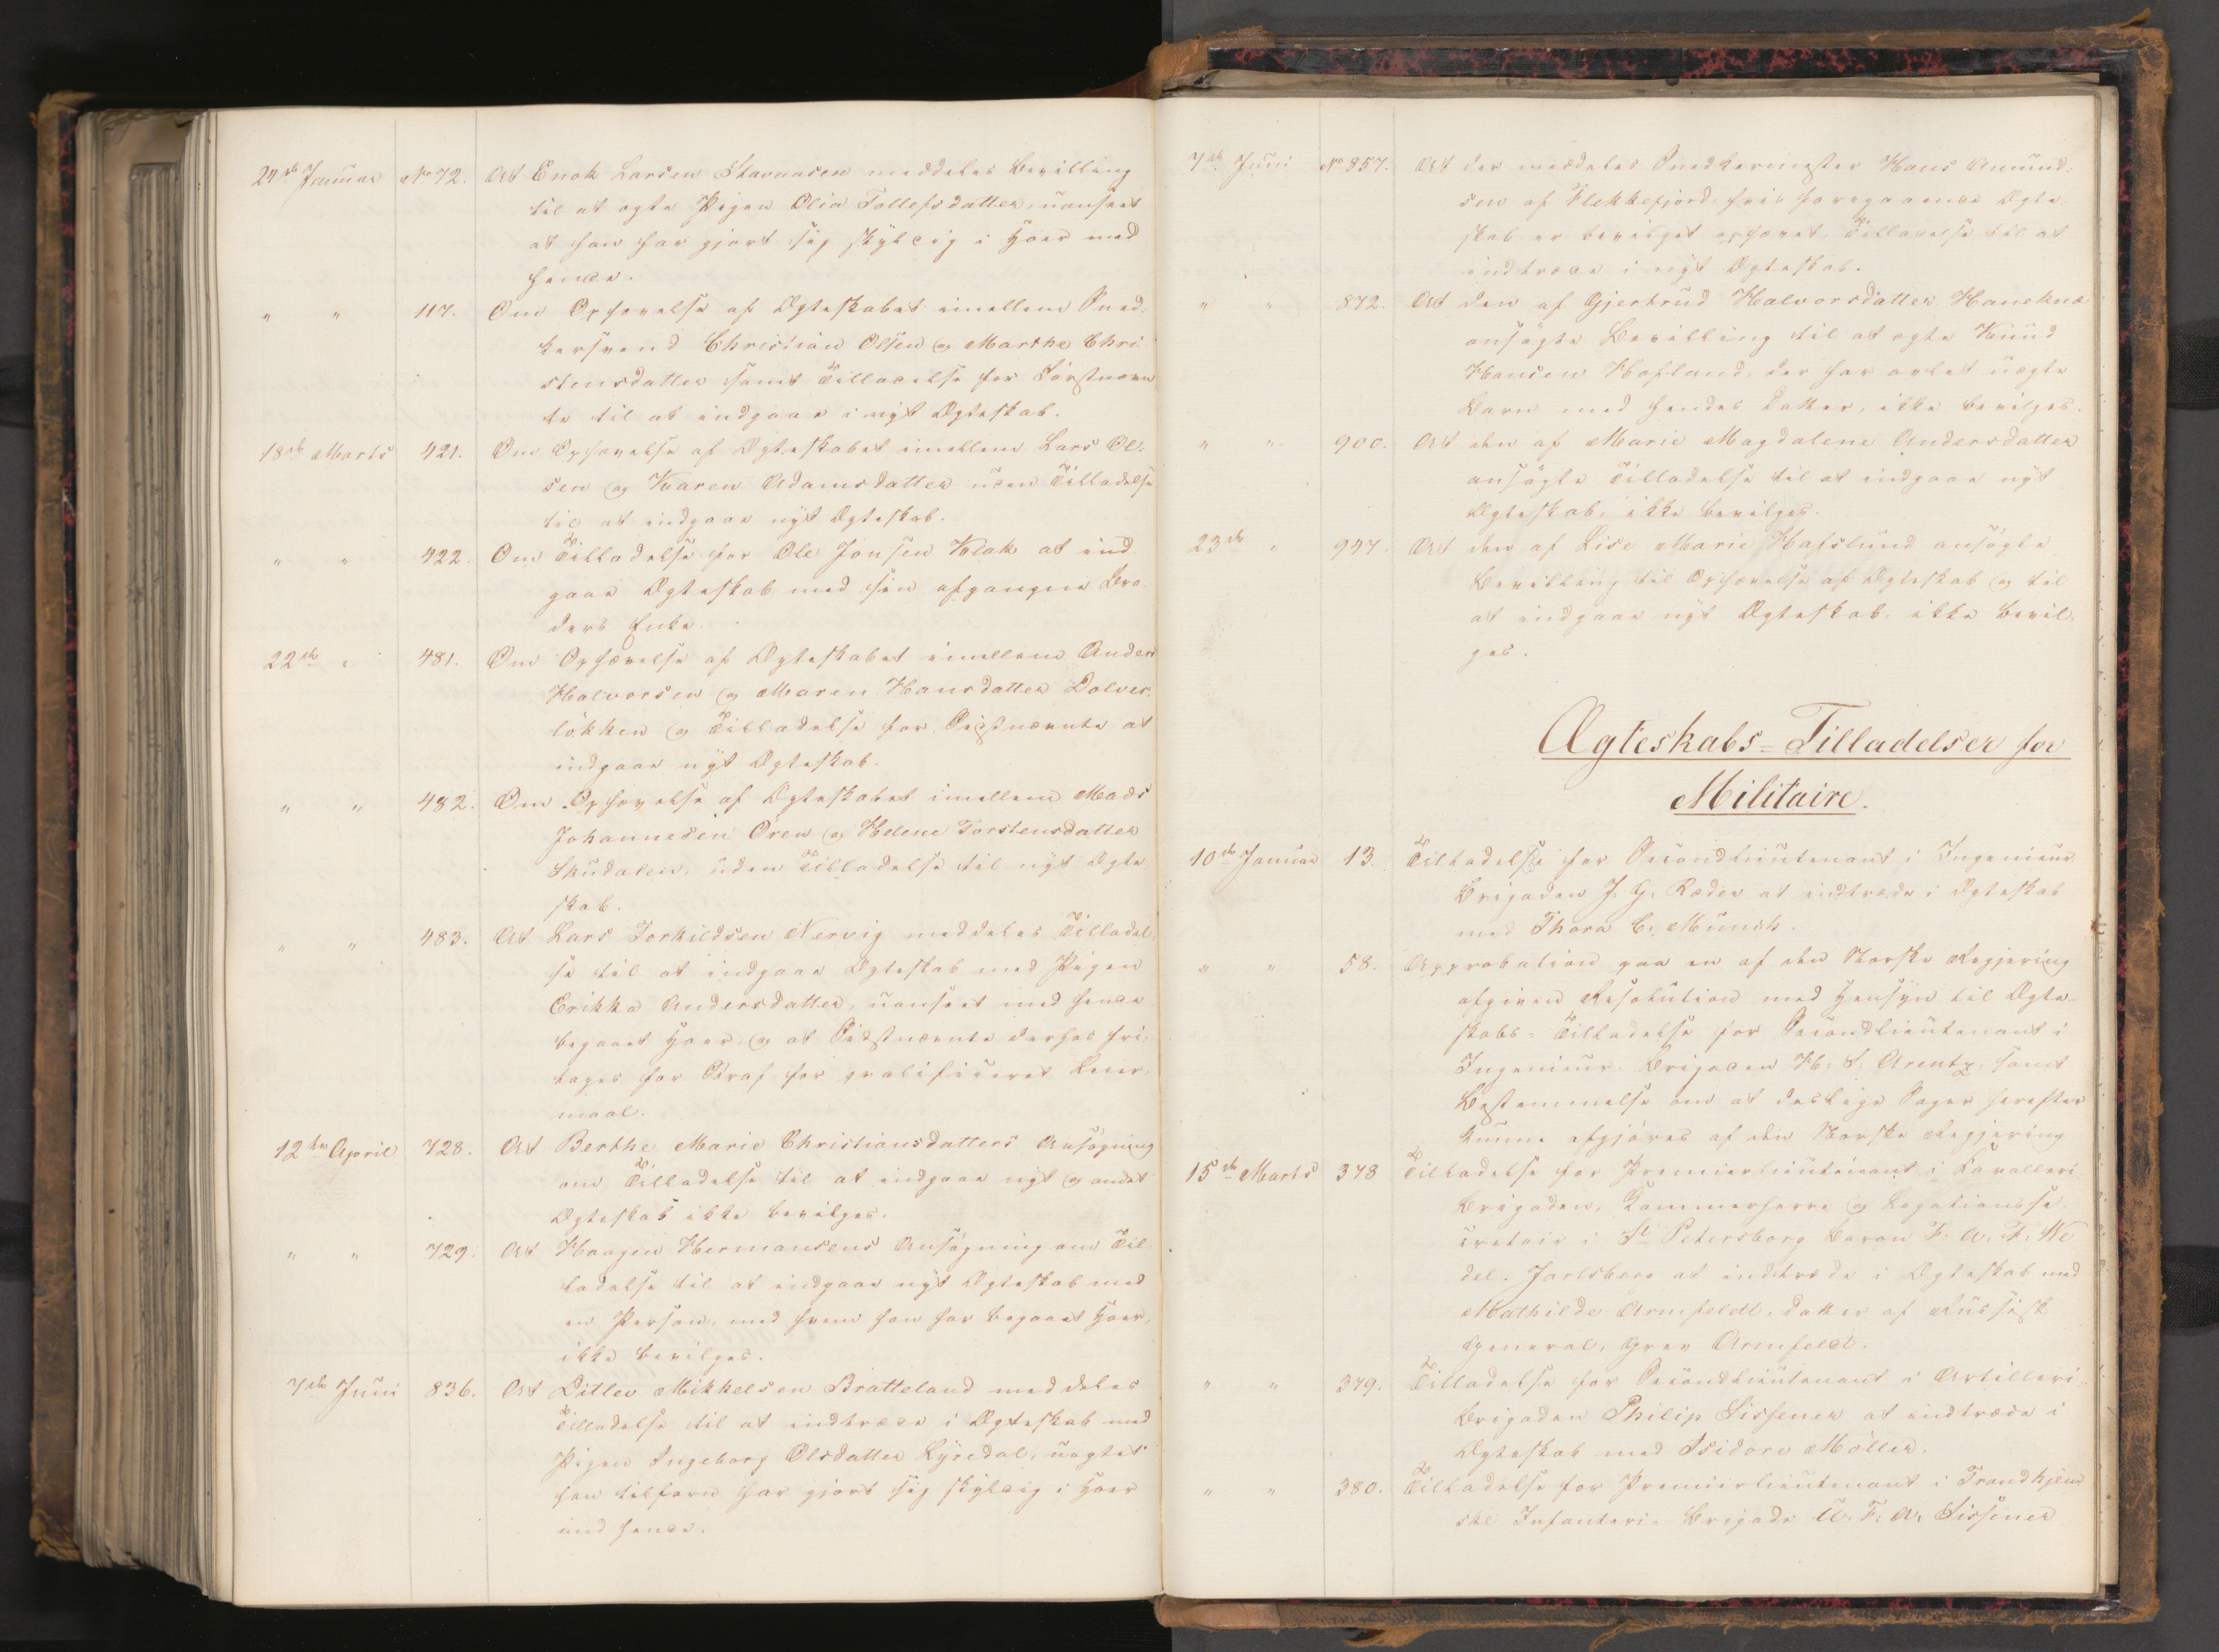 24de Januar No 72. At Enok Larsen Stavaasen meddeles Bevilling
til at ægte Pigen Olia Tollefsdatter, uanseet
at han har gjort sig skyldig i Hoer med
hende.
" " 117. Om Ophævelse af Ægteskabet imellem Sned-
kersvend Christian Olsen og Marthe Chri
stensdatter samt Tilladelse for Førstnævn
te til at indgaae i nyt Ægteskab.
18de Marts 421. Om Ophævelse af Ægteskabet imellem Lars Ol-
sen og Karen Adamsdatter uden Tilladelse
til at indgaae nyt Ægteskab.
" " 422. Om Tilladelse for Ole Jonsen Klak at ind
gaae Ægteskab med sin afgangne Bro-
ders Enke.
22de " 481. Om Ophævelse af Ægteskabet imellem Anders
Halvorsen og Maren Hansdatter Dolver-
løkken og Tilladelse for Sidstnævnte at
indgaae nyt Ægteskab.
" " 482. Om Ophævelse af Ægteskabet imellem Mads
Johannesen Øren og Helene Torstensdatter
Skudalen, uden Tilladelse til nyt Ægte
skab.
" " 483. At Lars Torkildsen Nervig meddeles Tilladel
se til at indgaae Ægteskab med Pigen
Erikka Andersdatter, uanseet med hende
begaaet Hoer, og at Sidstnævnte derhos fri-
tages for Straf for qvalificeret Leier-
maal.
12te April 728. At Berthe Marie Christiansdatters Ansøgning
om Tilladelse til at indgaae nyt og andet
Ægteskab ikke bevilges.
" " 729. At Haagen Hermansens Ansøgning om Til-
ladelse til at indgaae nyt Ægteskab med
en Person, med hvem han har begaaet Hoer,
ikke bevilges.
7de Juni 836. At Ditlev Mikkelsen Bratteland meddeles
Tilladelse til at indtræde i Ægteskab med
Pigen Ingeborg Olsdatter Lyredal, uagtet
han tilforn har gjort sig skyldig i Hoer
med hende.
7de Juni No 857. At der meddeles Snedkermester Hans Amund-
sen af Flekkefjord hvis foregaaende Ægte-
skab er bevilget ophævet, Tilladelse til at
indtræde i nyt Ægteskab.
" " 872. At den af Gjertrud Halvorsdatter Haneknæ
ansøgte Bevilling til at ægte Knud
Hansen Hofland, der har avlet uægte
Barn med hendes Datter, ikke bevilges.
" " 900. At den af Marie Magdalene Andersdatter
ansøgte Tilladelse til at indgaae nyt
Ægteskab, ikke bevilges.
23de " 947. At den af Lise Marie Hafslund ansøgte
Bevilling til Ophævelse af Ægteskab og til
at indgaae nyt Ægteskab, ikke bevil-
ges.
Ægteskabs-Tilladelser for
Militaire.
10de Januar 13. Tilladelse for Secondlieutenant i Ingenieur
Brigaden J. G. Ræder at indtræde i Ægteskab
med Thora C. Munch.
" " 58. Approbation paa en af den Norske Regjering
afgiven Resolution med Hensyn til Ægte-
skabs-Tilladelse for Secondlieutenant i
Ingenieur-Brigaden H. S. Arentz, samt
Bestemmelse om at deslige Sager herefter
kunne afgjøres af den Norske Regjering
15de Marts 378 Tilladelse for Premierlieutenant i Cavalleri
Brigaden, Kammerherre og Legationsse-
cretair i St Petersborg Baron F. A. F. We
del-Jarlsberg at indtræde i Ægteskab med
Mathilde Armfeldt, Datter af Russisk
General, Grev Armfeldt.
" " 379. Tilladelse for Secondlieutenant i Artilleri-
Brigaden Philip Sissener at indtræde i
Ægteskab med Isidore Møller.
" " 380. Tilladelse for Premierlieutenant i Trondhjem
ske Infanteri-Brigade U. F. A. Sissener